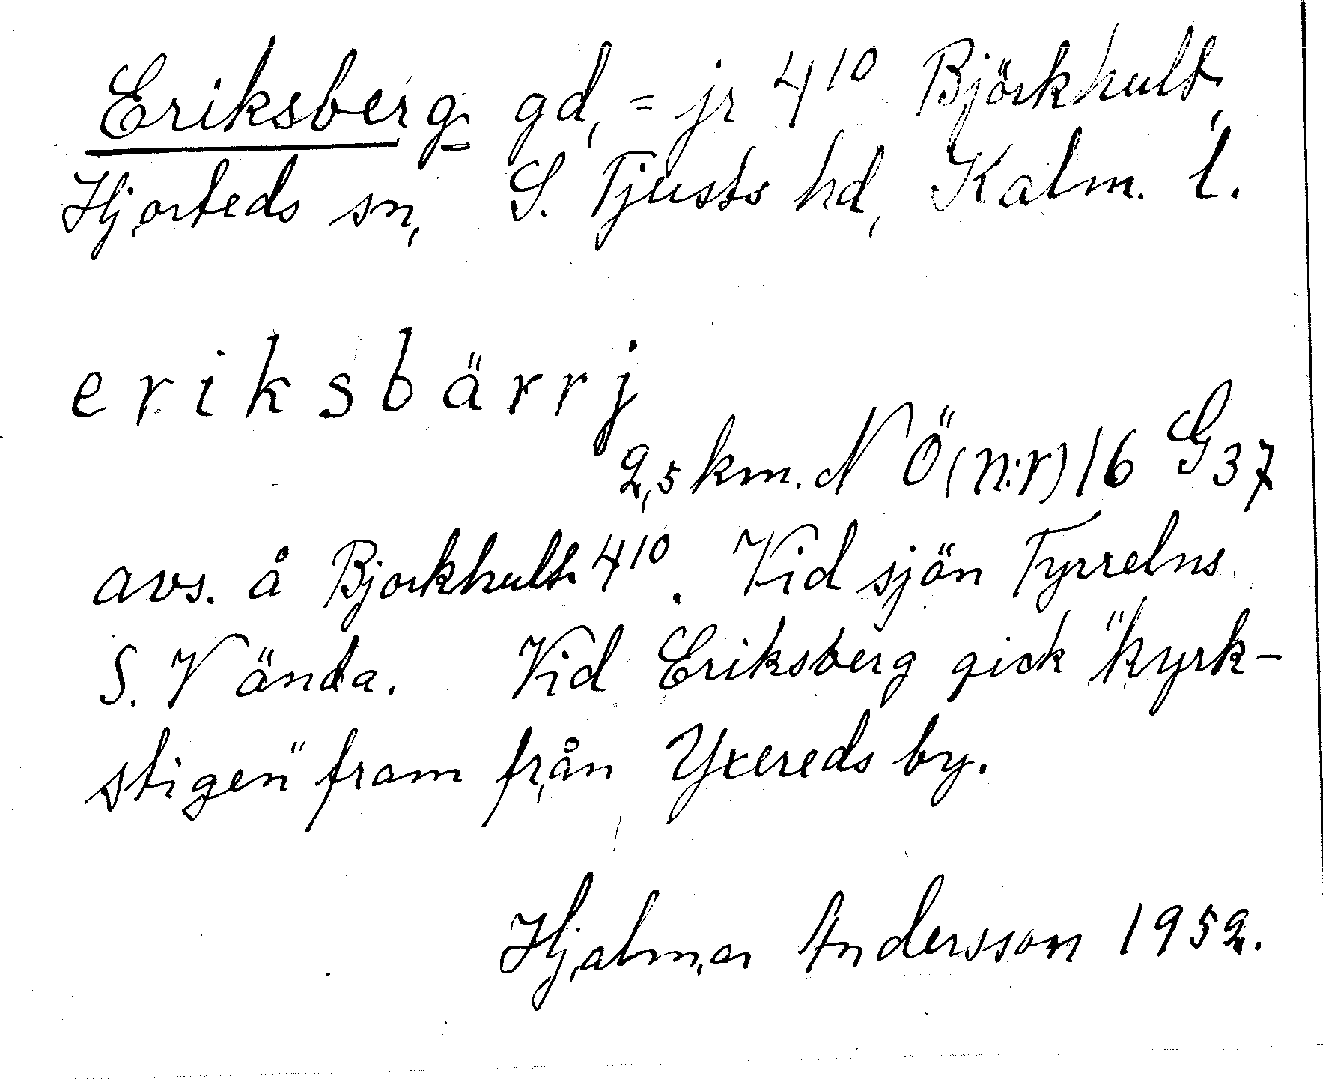 Eriksberg gd, = jr 4¹⁰ Björkhult,
Hjorteds sn, S. Tjusts hd, Kalm. l.
eriksbärrj
2,5 km. N Ö (n:r) 16 G 37
avs. å Bjorkhult 4¹⁰. Vid sjön Tyrrelns
S. Vända. Vid Eriksberg gick "kyrk-
stigen" fram från Yxereds by.
Hjalmar Andersson 1952.